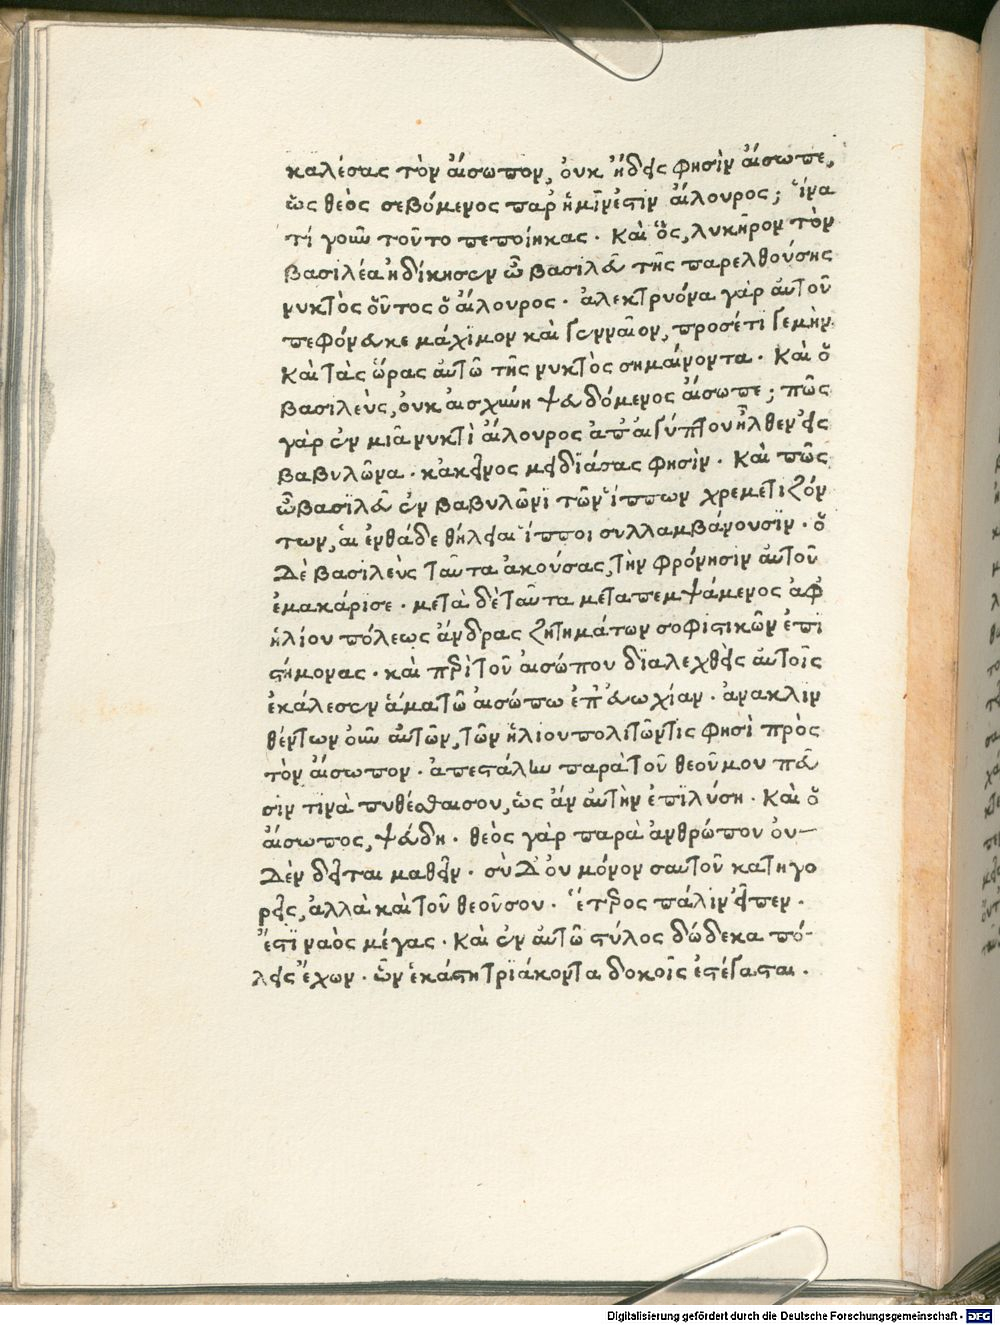 καλέσας τὸν ἄισωπον, ὀυκ ἤδεις φησὶν ἄισωπε,
ὡς θεὸς σεβόμενος παρ ἡμῖν ἐστιν ἄιλουρος; ἵνα
τί γοῦν τοῦτο πεποίηκας. Καὶ ὃς, λυκῆρον τὸν
βασιλέα ἠδίκησεν ὦ βασιλεῦ τῆς παρελθούσης
νυκτὸς ὄντος ὃ ἄιλουρος. ἀλεκτρυόνα γὰρ ἀυτοῦ
πεφόνευκε μάχϊμον καὶ γενναῖον, προσέτι γεμὴν
Καὶ τὰς ὥρας ἀυτῶ τῆς νυκτὸς σημαίνοντα. Καὶ ὃ
βασιλεὺς, ὀυκ ἀισχύνη ψευδόμενος ἄισωπε; πῶς
γὰρ ἐν μιᾶ νυκτὶ ἄιλουρος ἀπ ἀιγύπτου ἦλθεν εἰς
βαβυλῶνα. κἀκεῖνος μειδϊάσας φησὶν. Καὶ πῶς
ὦ βασϊλεῦ ἐν βαβυλῶνϊ τῶν ἵππων χρεμετιζόν
των, ἁι ἐνθάδε θήλειαι ἵπποι συλλαμβάνουσϊν. ὃ
Δὲ βασιλεὺς ταῦτα ἀκούσας, τὴν φρόνησϊν ἀυτοῦ
ἐμακάρϊσε. μετὰ δὲ ταῦτα μεταπεμψάμενος ἀφ
ἡλίου πόλεως ἄνδρας ζητημάτων σοφϊστικῶν ἐπϊ
στήμονας. καὶ περὶ τοῦ ἀισώπου δϊαλεχθεὶς ἀυτοῖς
ἐκάλεσεν ἅμα τῶ ἀισώπω ἐπ ἐυωχίαν. ἀνακλιν
θέντων ὀυν ἀυτῶν, τῶν ἡλίου πολϊτῶν τὶς φησὶ πρὸς
τὸν ἄισωπον. ἀπεστάλην παρὰ τοῦ θεοῦ μου πεῦ
σϊν τϊνὰ πυθέσθαι σου, ὡς ἂν ἀυτὴν ἐπϊλύση. Καὶ ὃ
ἄισωπος, ψεύδη. θεὸς γὰρ παρὰ ἀνθρώπου ὀυ-
Δὲν δεῖται μαθεῖν. σὺ Δ ὀυ μόνον σαυτοῦ κατηγο
ρεῖς, ἀλλὰ καὶ τοῦ θεοῦ σου. ἕτερος πάλϊν εἶπεν.
ἔστϊ ναὸς μέγας. Καὶ ἐν ἀυτῶ στύλος δώδεκα πό-
λεις ἔχων. ὧν ἑκάστη τρϊάκοντα δοκοῖς ἐστέγασται.
Digitalisierung gefördert durch die Deutsche Forschungsgemeinschaft - DFG